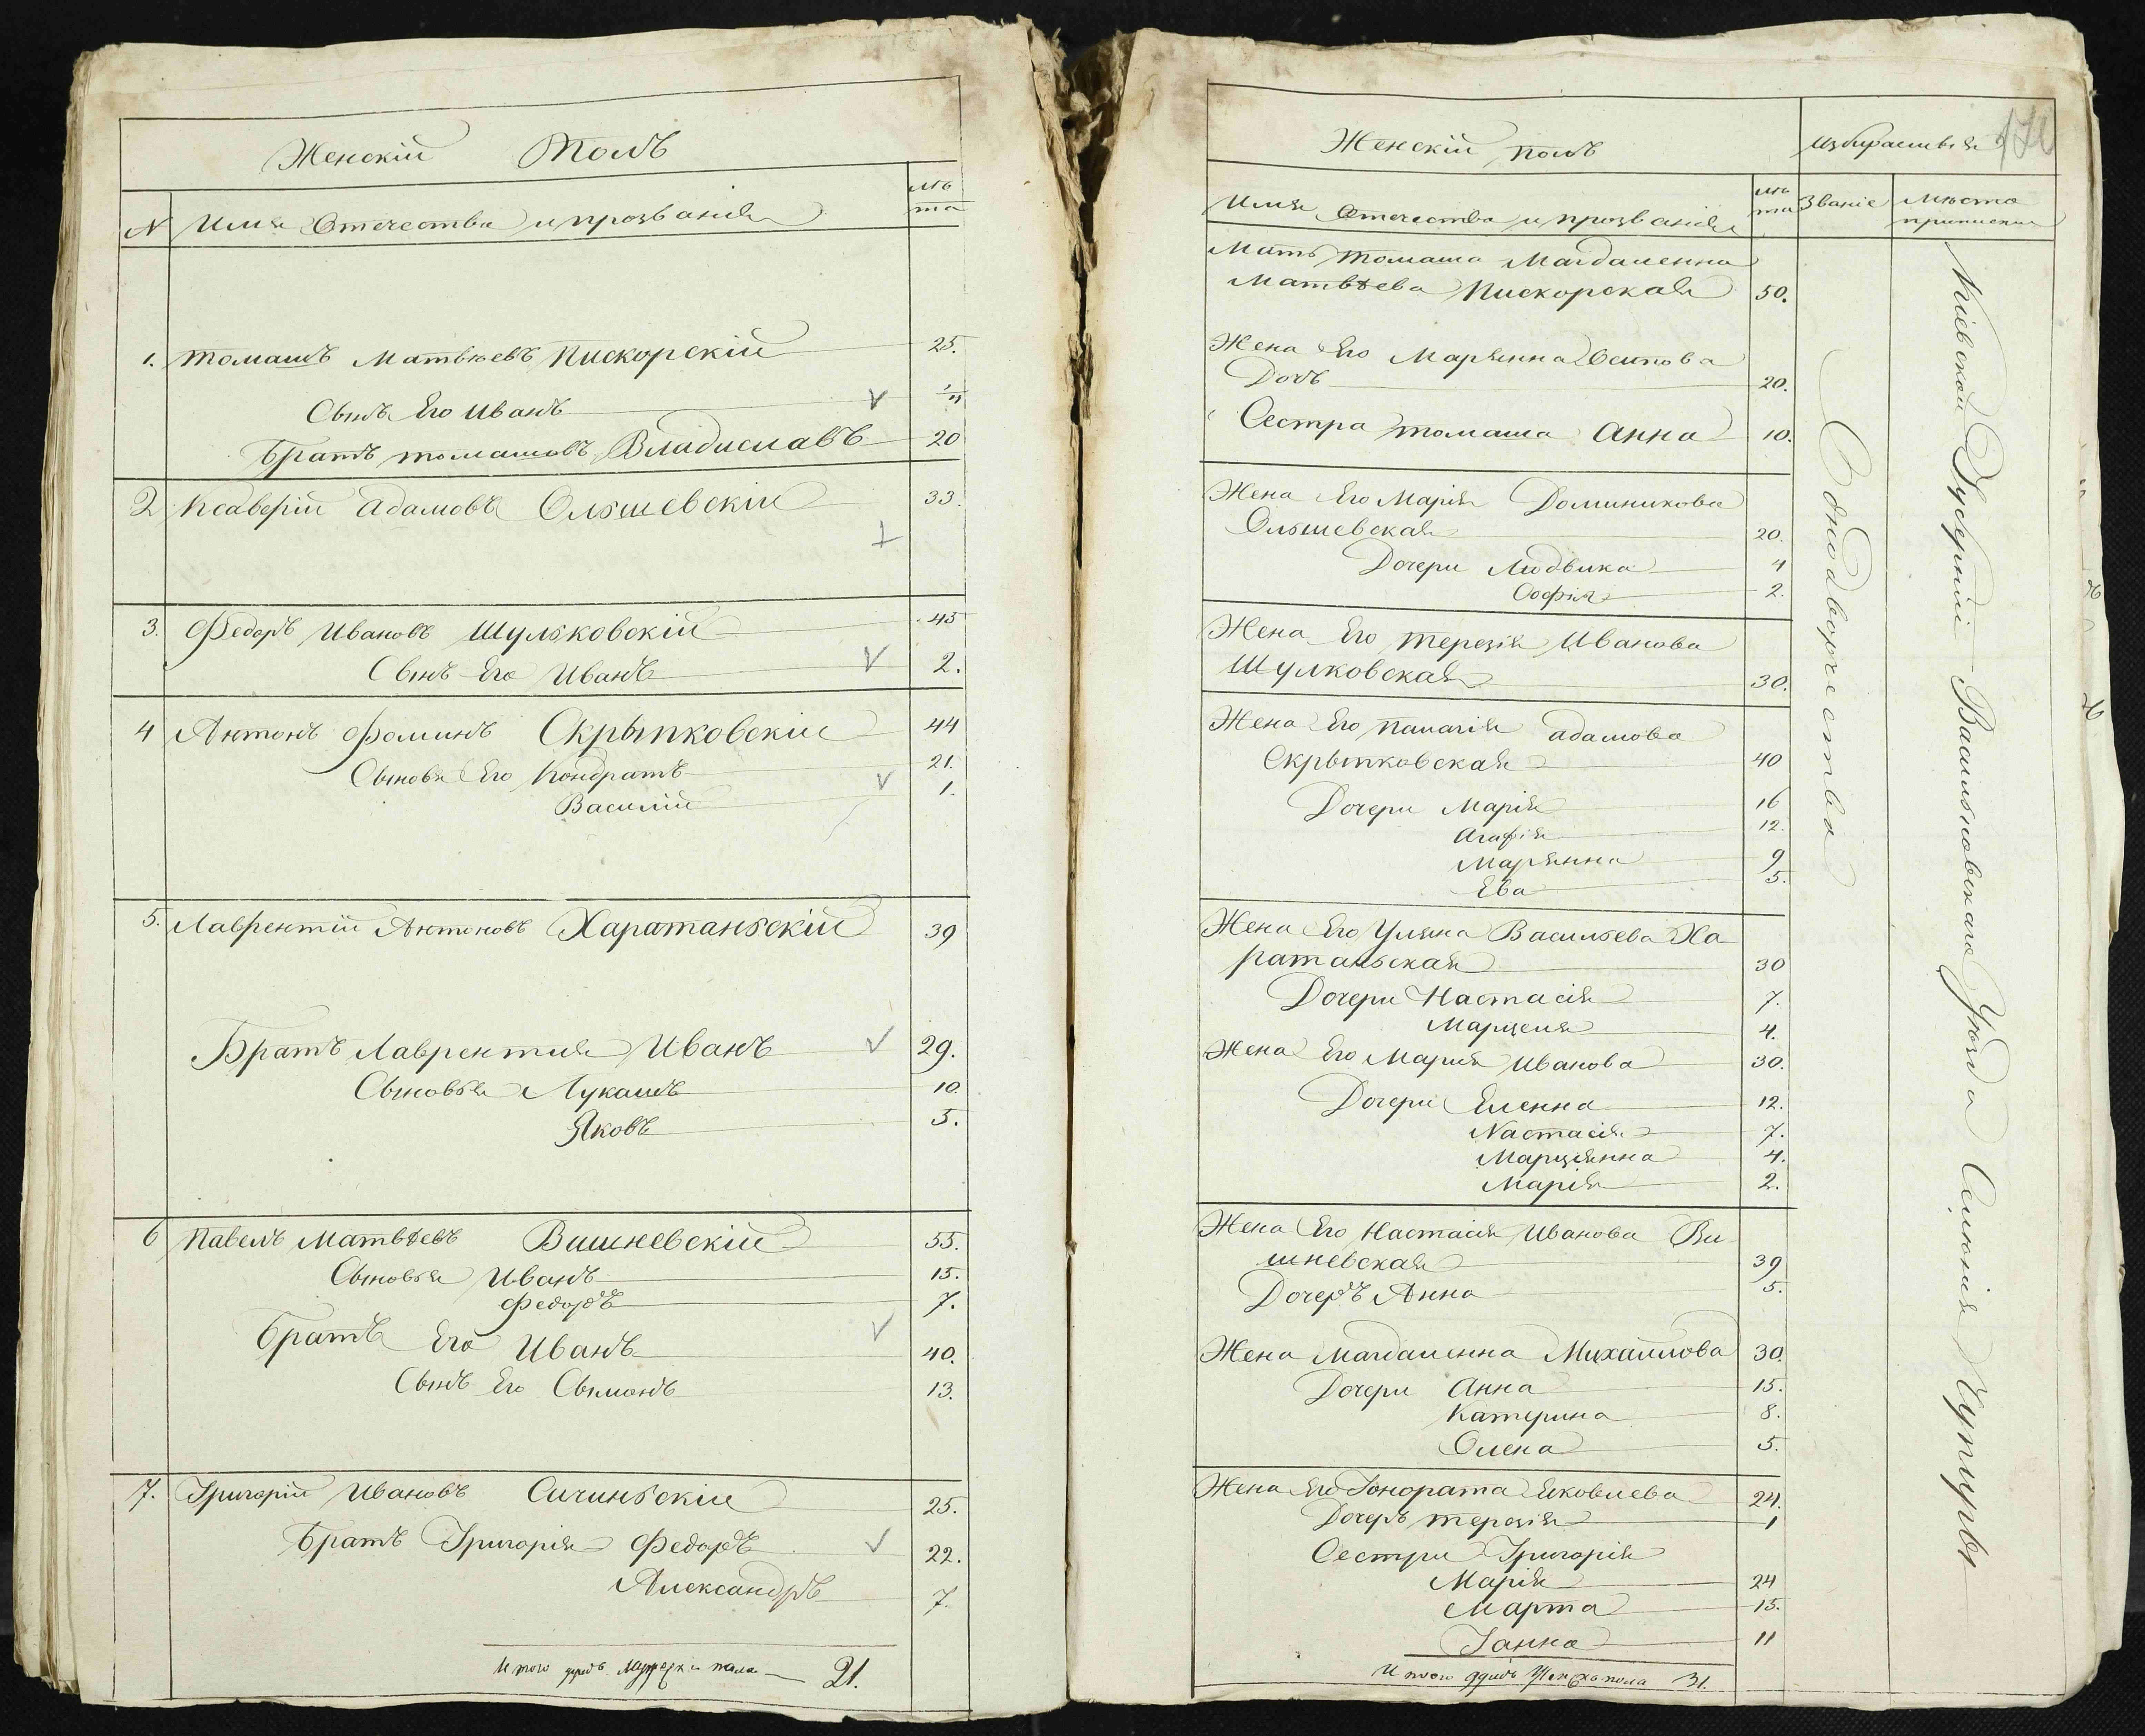 Женскій Полъ
N Имя Отечества и прозванія лѣта
1. Томашъ Матвѣевъ Пискорскій 25.
Сынъ Его Иванъ
Братъ томашовъ Владиславъ 20
2 Ксаверій Адамовъ Ольшевскій 33.
3. Федоръ Ивановъ Шульковскій 45
Сынъ Его Иванъ 2.
4 Антонъ Фоминъ Скрыпковскій 44
Сыновя Его Кондратъ 21.
Василій 1.
5. Лаврентій Антоновъ Харатаньскій 39
Братъ Лаврентия Иванъ 29.
Сыновья Лукашъ 10.
Яковъ 5.
6 Павелъ Матвѣевъ Вишневскій 55.
Сыновья Иванъ 15.
Федоръ 7.
Братъ Его Иванъ 40.
Сынъ Его Сымонъ 13.
7. Григорій Ивановъ Сичиньскій 25.
Братъ Григорія Федоръ 22.
Александръ 7.
Итого душъ Мужеска пола 21.
Женскій полъ
избираемыя
Имя Отечества и прозванія лѣта
Званіе Мѣсто приписки
Мать томаша Магдаленна
Матвѣева Пискорская 50.
Жена Его Марянна Осипова
Дочь 20.
Сестра томаша Анна 10.
Жена Его Марія Доминикова
Ольшевская 20.
Дочери Людвика 4
Софія 2.
Жена Его терезія Иванова
Шулковская 30.
Жена Его Палагія адамова
Скрыпковская 40
Дочери Марія 16
Агафія 12.
Марянна 9
Ева 5.
Жена Его Уляна Васильева Ха
ратаньская 30
Дочери Настасія 7.
Марцеля 4.
Жена Его Мария Иванова 30.
Дочери Еленна 12.
Настасія 7.
Марціянна 4.
Марія 2.
Жена Его Настасія Иванова Ви
шневская 39
Дочеръ Анна 5.
Жена Магдаленна Михайлова 30.
Дочери Анна 15.
Катерина 8.
Олена 5.
Жена Его Гонората Яковлева 24.
Дочеръ терезія 1
Сестри Григорія
Марія 24
Марта 15.
Ганна 11
Итого душъ Женска пола 31.
В однодворчество
Кіевской Губерніи Васильковскаго Уѣзда Селенія Чупиры